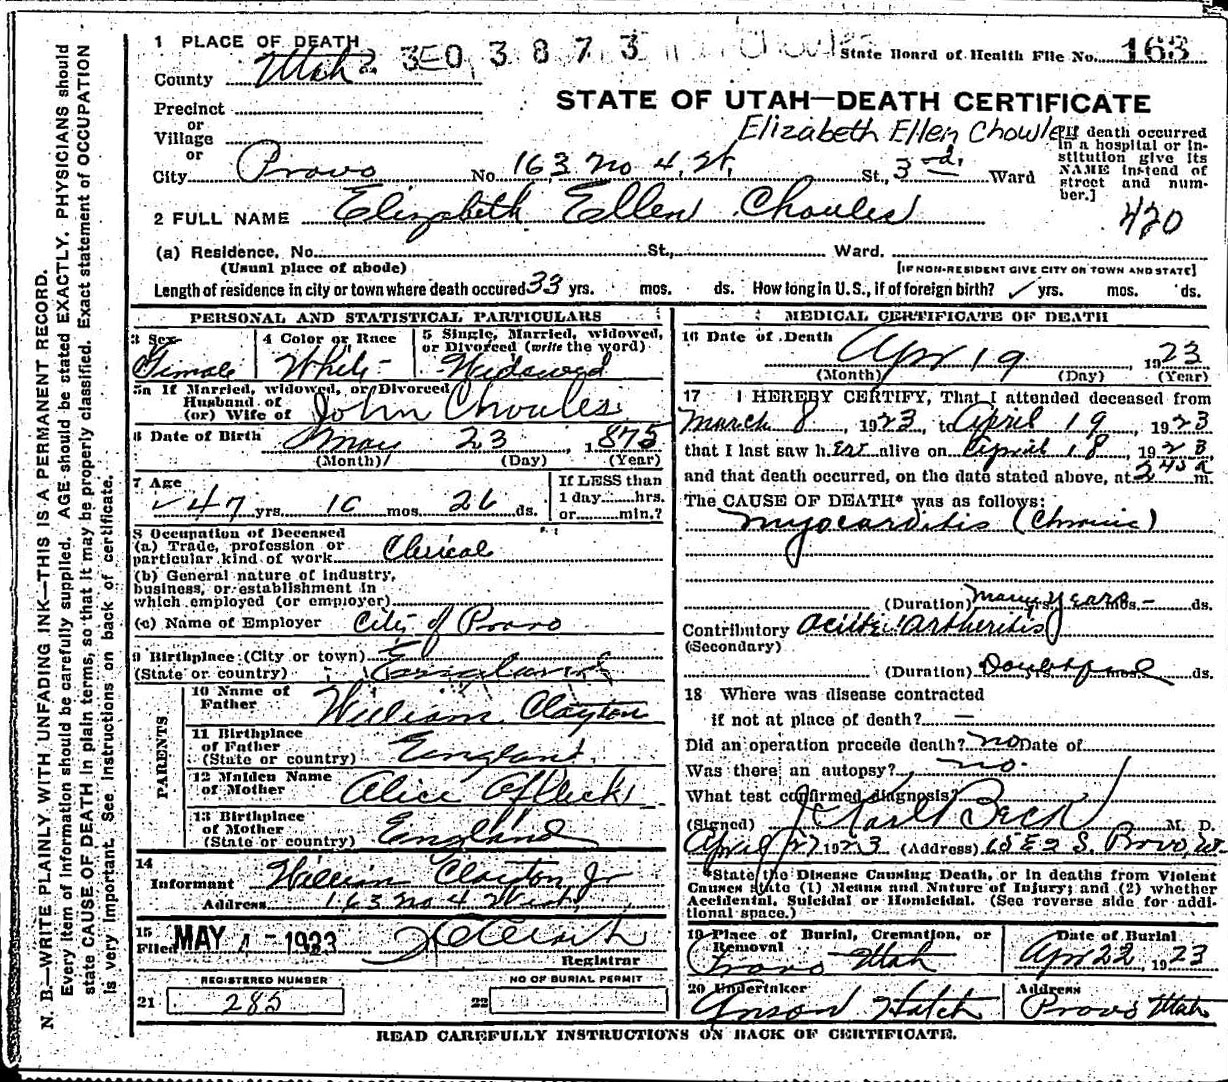 1 PLACE OF DEATH
3 0 3 8 7 3
State Board of Health File No. 163
County Utah
Precinct
or
Village
or
STATE OF UTAH—DEATH CERTIFICATE
Elizabeth Ellen Chowles
[If death occurred in a hospital or institution give its NAME instead of street and number.]
City Provo No. 163 No 4. W. St., 3rd. Ward
2 FULL NAME Elizabeth Ellen Choules
420
(a) Residence, No. St., Ward.
(Usual place of abode) [IF NON-RESIDENT GIVE CITY OR TOWN AND STATE]
Length of residence in city or town where death occured 33 yrs. mos. ds. How long in U.S., if of foreign birth? ✓ yrs. mos. ds.
PERSONAL AND STATISTICAL PARTICULARS
3 Sex Female
4 Color or Race White
5 Single, Married, widowed, or Divorced (write the word) Widowed
5a If Married, widowed, or Divorced
Husband of
(or) Wife of John Choules
6 Date of Birth May 23, 1875
(Month) (Day) (Year)
7 Age ✓ 47 yrs. 10 mos. 26 ds.
If LESS than
1 day hrs.
or min.?
8 Occupation of Deceased
(a) Trade, profession or
particular kind of work Clerical
(b) General nature of industry,
business, or establishment in
which employed (or employer)
(c) Name of Employer City of Provo
9 Birthplace (City or town)
(State or country) England
PARENTS
10 Name of
Father William Clayton
11 Birthplace
of Father
(State or country) England
12 Maiden Name
of Mother Alice Afleck
13 Birthplace
of Mother
(State or country) England
14
Informant William Clayton Jr
Address 163 No 4 West
15
Filed MAY 4 - 1923
Registrar
REGISTERED NUMBER
21 285
NO OF BURIAL PERMIT
22
MEDICAL CERTIFICATE OF DEATH
16 Date of Death Apr 19, 1923
(Month) (Day) (Year)
17 I HEREBY CERTIFY, That I attended deceased from
March 8, 1923, to April 19, 1923
that I last saw her alive on April 18, 1923,
and that death occurred, on the date stated above, at 245 a m.
The CAUSE OF DEATH* was as follows:
Myocarditis (Chronic)
(Duration) many years mos. - ds.
Contributory Acute Artheritis
(Secondary)
(Duration) Doubtful mos. ds.
18 Where was disease contracted
if not at place of death? —
Did an operation precede death? no Date of
Was there an autopsy? no.
What test confirmed diagnosis?
(Signed) J Karl Beck M. D.
April 27 1923 (Address) 65 E 2 S. Provo, Ut.
*State the Disease Causing Death, or in deaths from Violent
Causes state (1) Means and Nature of Injury; and (2) whether
Accidental, Suicidal or Homicidal. (See reverse side for addi-
tional space.)
19 Place of Burial, Cremation, or
Removal
Provo Utah
Date of Burial
Apr 22, 1923
20 Undertaker
Anson Hatch
Address
Provo Utah
READ CAREFULLY INSTRUCTIONS ON BACK OF CERTIFICATE.
N. B.—WRITE PLAINLY WITH UNFADING INK—THIS IS A PERMANENT RECORD.
Every item of information should be carefully supplied. AGE should be stated EXACTLY. PHYSICIANS should
state CAUSE OF DEATH in plain terms, so that it may be properly classified. Exact statement of OCCUPATION
is very important. See instructions on back of certificate.